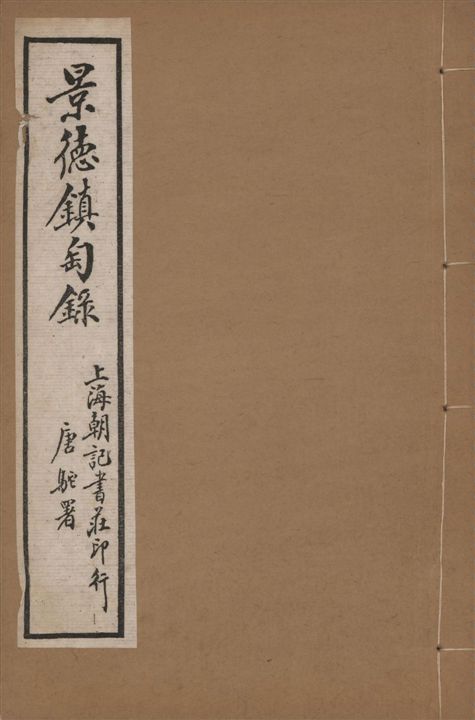 景德鎮匋錄
上海朝記書莊印行
唐駝署